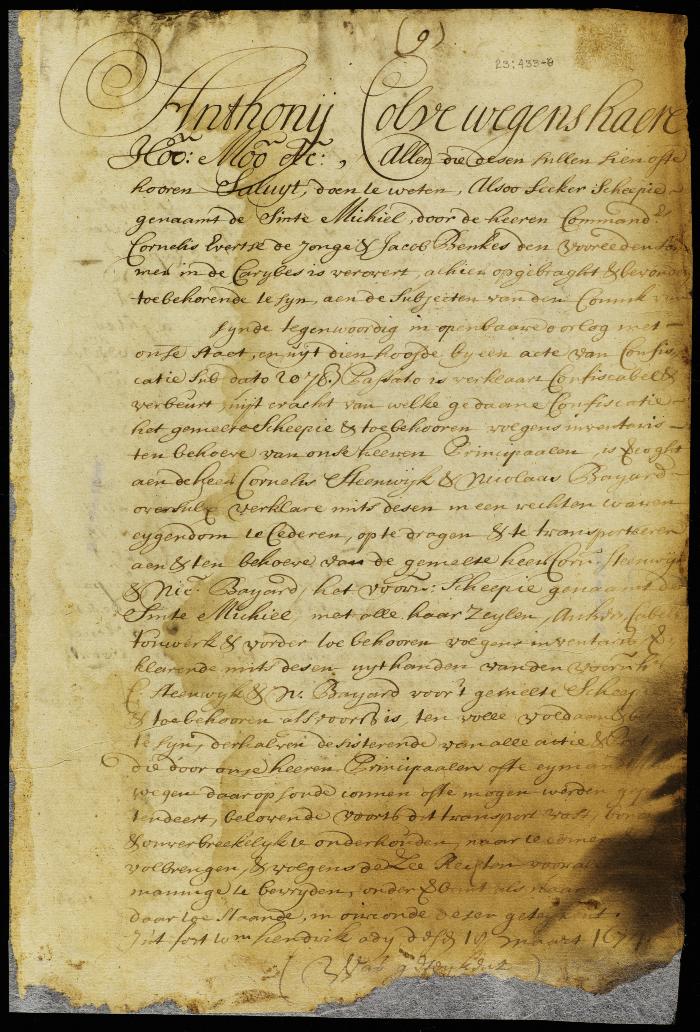 (9)
23:433-9
Anthonij Colve wegens haere
Hoo: Moo: etc:, Allen die desen sullen sien ofte
hooren Saluyt, doen te weten, Alsoo Seeker Scheepie
genaamt de Sinte Michiel, door de heeren Command.rs
Cornelis Evertse de Jonge & Jacob Benkes den voorleeden
in de Carybes is verovert, alhier opgebraght & bevonden
toebehorende te syn, aen de Subjecten van den Conink van
synde tegenwoordig in openbaare oorlog met
onse Staet, en uyt dien hoofde by een acte van Confis
catie Sub dato 20 Passato is verklaart Confiscabel &
verbeurt, uijt cracht van welke gedaane Confiscatie
het gemelte Scheepie & toebehooren volgens inventaris
ten behoeve van onse heeren Principaalen, is
aen de heer Cornelis Steenwijk & Nicolaas Bayard
oversulx verklare mits desen in een rechten waren
eygendom te Cederen, op te dragen & te transporteeren
aen & ten behoeve van de gemelte heer Corn: Steenwijk
& Nic: Bayard, het voorn: Scheepie genaamt d
Sinte Michiel, met alle haar Zeylen, Anker,
touwerk & vorder toebehooren volgens inventaris,
klarende mits desen uyt handen van den voorn: h
C. Steenwyk & N. Bayard voor't gemelte Scheep
& toebehooren als voors is, ten volle voldaan & b
te syn, derhalven desisterende van alle actie &
die door onse heeren Principaalen ofte eyman
wegen daar op soude connen ofte mogen worden
tendeert, belovende voorts dit transport vast, bon
& onverbreekelyk te onderhouden, naar te comen
volbrengen, & volgens de Zee Rechten voor
manninge te bevryden, onder als naar
daar toe Staande, in oirconde desen geteykent
Int fort W.m hendrik ady 19 maart 167
(Was geteykent